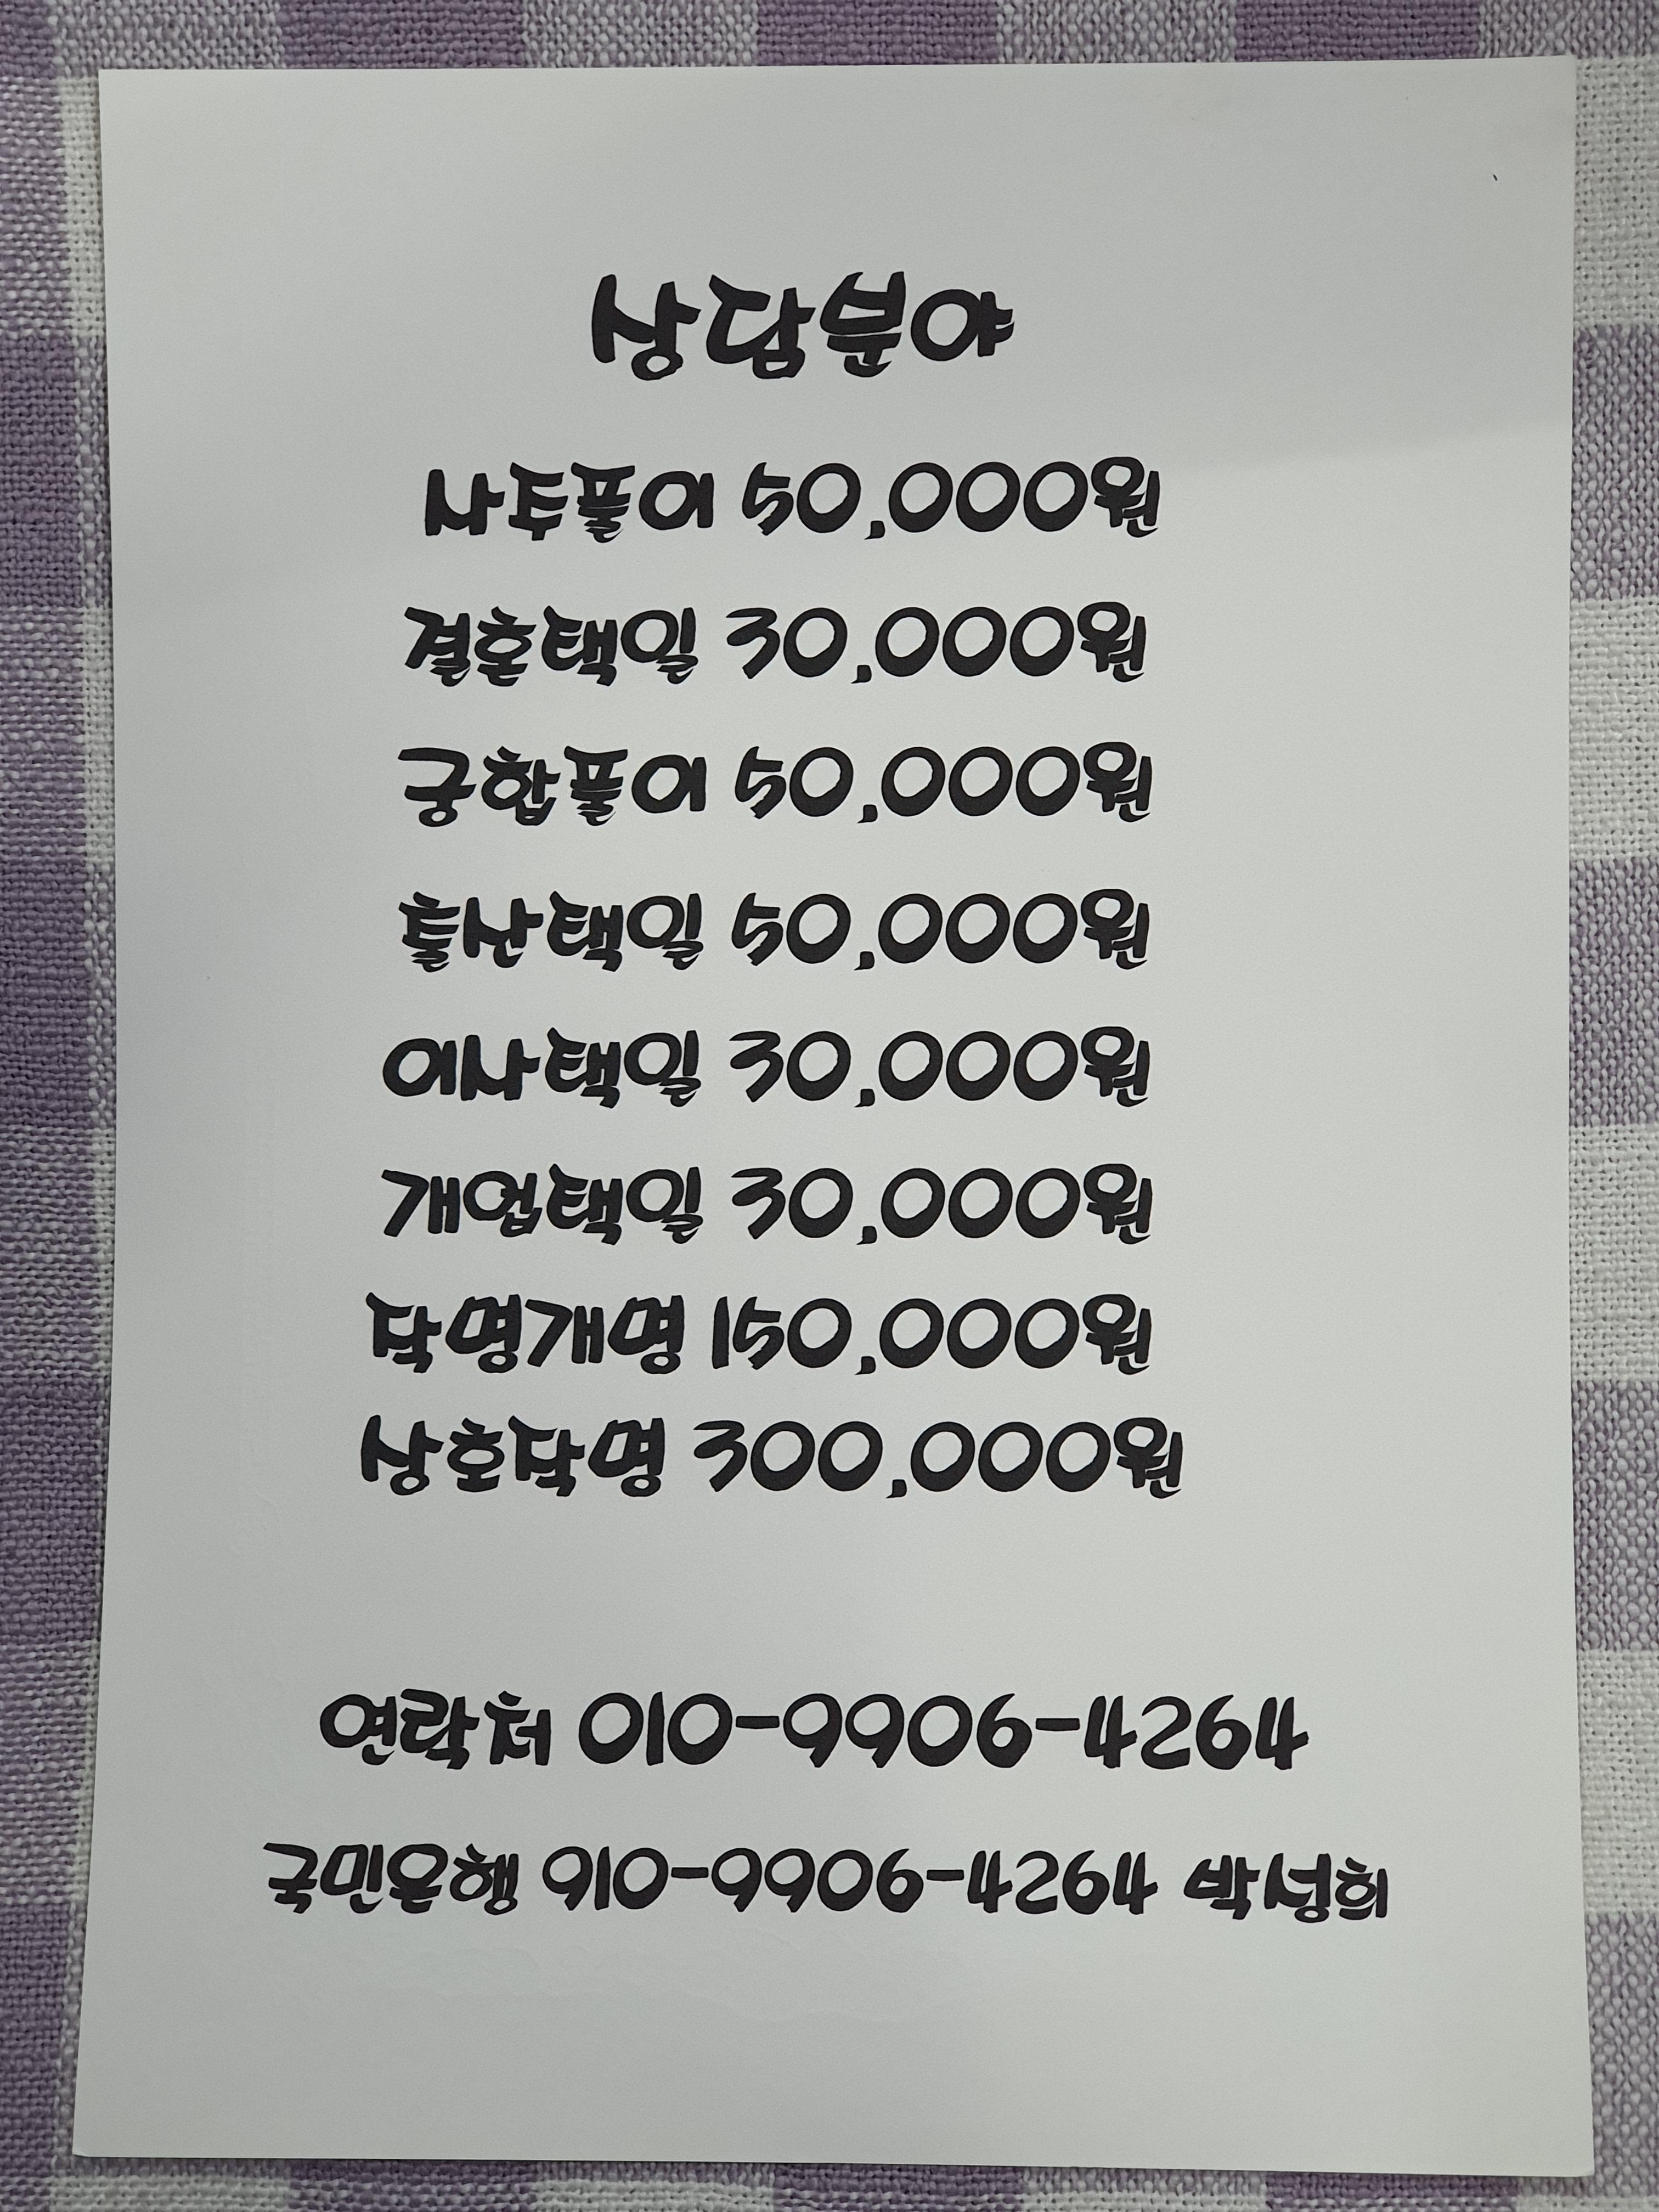 상담분야
사주풀이 50,000원
결혼택일 30,000원
궁합풀이 50,000원
출산택일 50,000원
이사택일 30,000원
개업택일 30,000원
작명개명 150,000원
상호작명 300,000원
연락처 010-9906-4264
국민은행 010-9906-4264 박성희